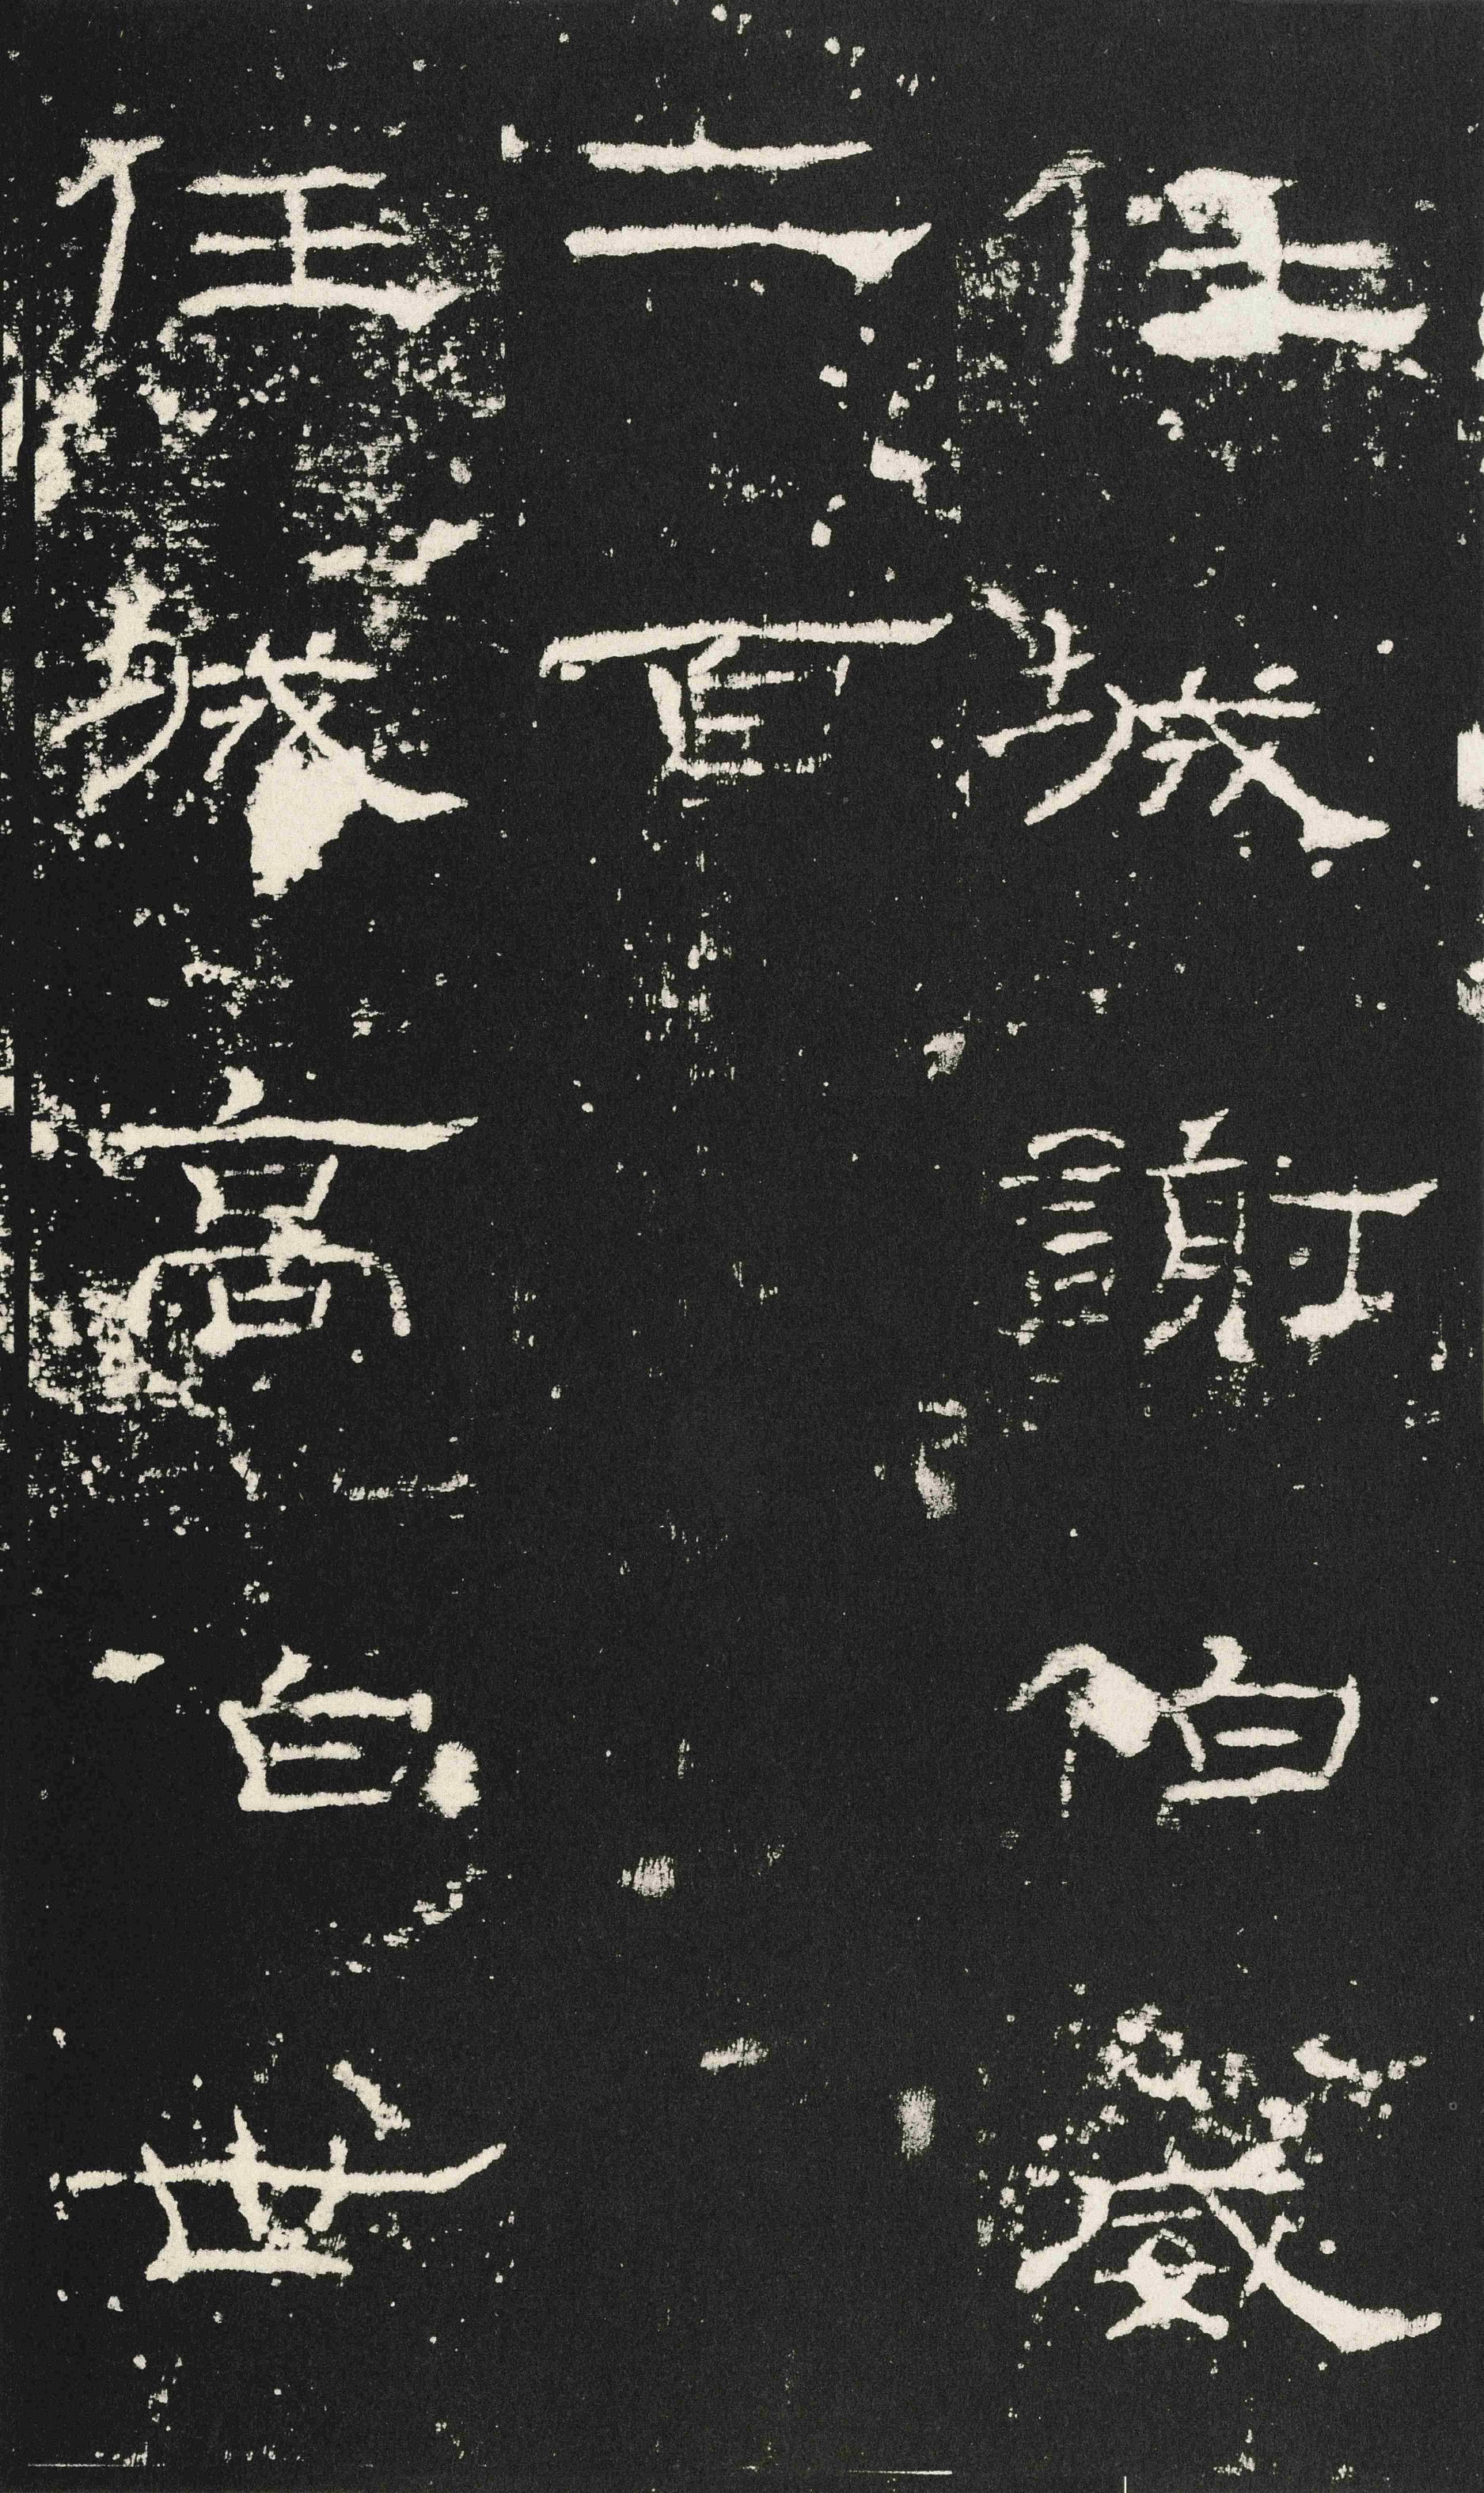 任城謝伯威
二百
任城高伯世